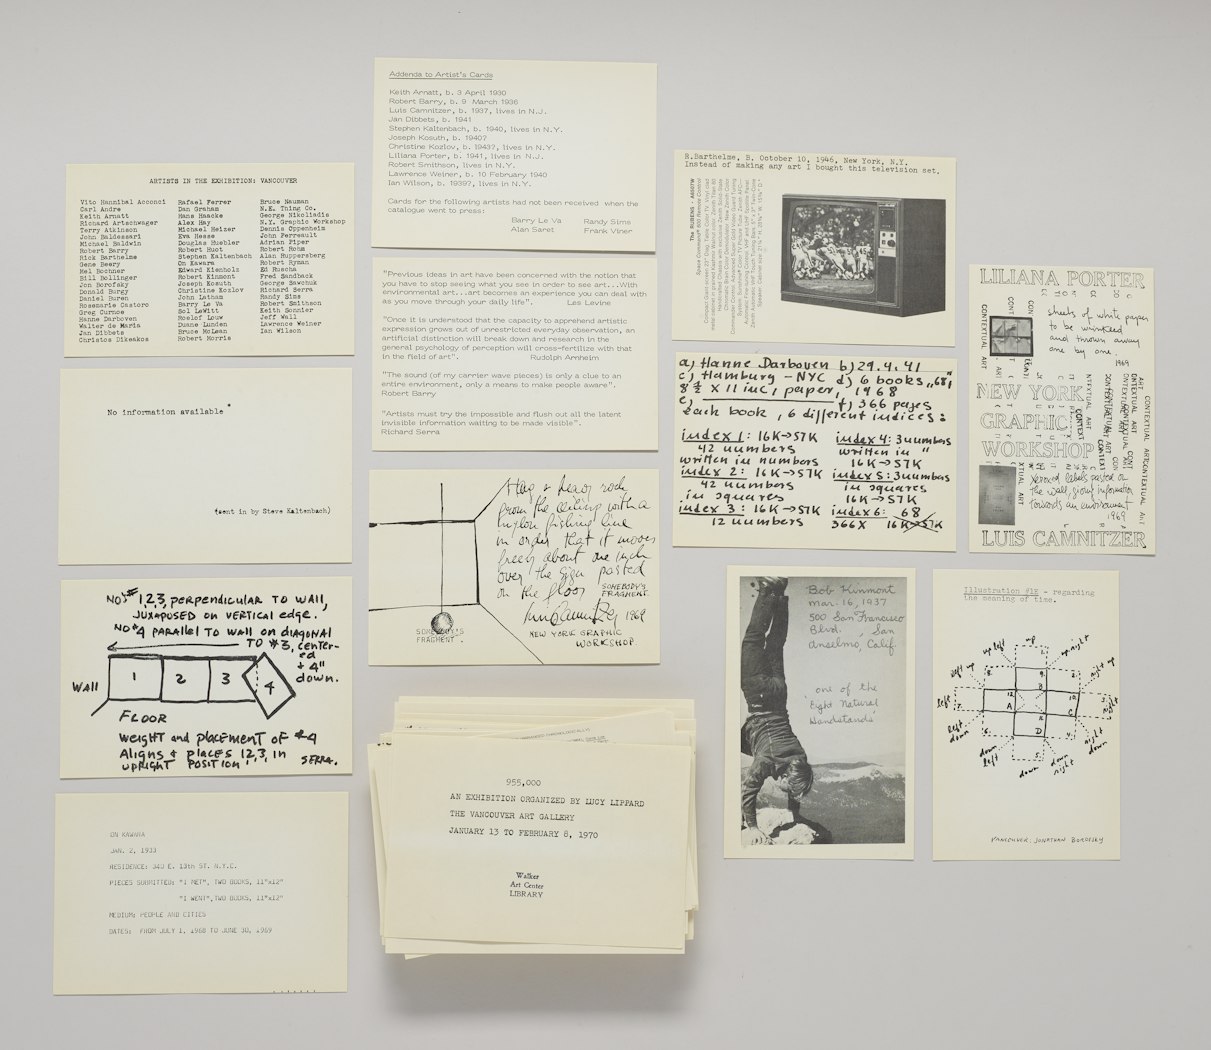 ARTISTS IN THE EXHIBITION: VANCOUVER
Vito Hannibal Acconci
Carl Andre
Keith Arnatt
Richard Artschwager
Terry Atkinson
John Baldessari
Michael Baldwin
Robert Barry
Rick Barthelme
Gene Beery
Mel Bochner
Bill Bollinger
Jon Borofsky
Donald Burgy
Daniel Buren
Rosemarie Castoro
Greg Curnoe
Hanne Darboven
Walter de Maria
Jan Dibbets
Christos Dikeakos
Rafael Ferrer
Dan Graham
Hans Haacke
Alex Hay
Michael Heizer
Eva Hesse
Douglas Huebler
Robert Huot
Stephen Kaltenbach
On Kawara
Edward Kienholz
Robert Kinmont
Joseph Kosuth
Christine Kozlov
John Latham
Barry Le Va
Sol LeWitt
Roelof Louw
Duane Lunden
Bruce McLean
Robert Morris
Bruce Nauman
N.E. Thing Co.
George Nikoliadis
N.Y. Graphic Workshop
Dennis Oppenheim
John Perreault
Adrian Piper
Robert Rohm
Alan Ruppersberg
Robert Ryman
Ed Ruscha
Fred Sandback
George Sawchuk
Richard Serra
Randy Sims
Robert Smithson
Keith Sonnier
Jeff Wall
Lawrence Weiner
Ian Wilson
No information available *
(sent in by Steve Kaltenbach)
NO.# 1,2,3, PERPENDICULAR TO WALL,
JUXAPOSED ON VERTICAL EDGE.
NO#4 PARALLEL TO WALL ON diAGONAL
TO #3, CENTER-
ed
+ 4"
down.
WALL
1
2
3
4
FLOOR
WEIGHT and placEMENT of #4
Aligns + places 1,2,3, in
UPRIGHT POSITION.
SERRA.
ON KAWARA
JAN. 2, 1933
RESIDENCE: 340 E. 13th ST. N.Y.C.
PIECES SUBMITTED: "I MET", TWO BOOKS, 11"x12"
"I WENT",TWO BOOKS, 11"x12"
MEDIUM: PEOPLE AND CITIES
DATES: FROM JULY 1, 1968 TO JUNE 30, 1969
Addenda to Artist's Cards
Keith Arnatt, b. 3 April 1930
Robert Barry, b. 9 March 1936
Luis Camnitzer, b. 1937, lives in N.J.
Jan Dibbets, b. 1941
Stephen Kaltenbach, b. 1940, lives in N.Y.
Joseph Kosuth, b. 1940?
Christine Kozlov, b. 1943?, lives in N.Y.
Liliana Porter, b. 1941, lives in N.J.
Robert Smithson, lives in N.Y.
Lawrence Weiner, b. 10 February 1940
Ian Wilson, b. 1939?, lives in N.Y.
Cards for the following artists had not been received when the
catalogue went to press:
Barry Le Va Randy Sims
Alan Saret Frank Viner
"Previous ideas in art have been concerned with the notion that
you have to stop seeing what you see in order to see art...With
environmental art...art becomes an experience you can deal with
as you move through your daily life". Les Levine
"Once it is understood that the capacity to apprehend artistic
expression grows out of unrestricted everyday observation, an
artificial distinction will break down and research in the
general psychology of perception will cross-fertilize with that
in the field of art". Rudolph Arnheim
"The sound (of my carrier wave pieces) is only a clue to an
entire environment, only a means to make people aware".
Robert Barry
"Artists must try the impossible and flush out all the latent
invisible information waiting to be made visible".
Richard Serra
Hang a heavy rock
from the ceiling with a
nylon fishing line
in order that it moves
freely about one inch
over the sign pasted
on the floor
SOMEBODY'S
FRAGMENT.
1969
NEW YORK GRAPHIC
WORKSHOP.
SOMEBODY'S
FRAGMENT.
955,000
AN EXHIBITION ORGANIZED BY LUCY LIPPARD
THE VANCOUVER ART GALLERY
JANUARY 13 TO FEBRUARY 8, 1970
Walker
Art Center
LIBRARY
R.Barthelme, B. October 10, 1946, New York, N.Y.
Instead of making any art I bought this television set.
The RUBENS
a) Hanne Darboven b) 29.4.41
c) Hamburg – NYC d) 6 books „68"
8 3/4 x 11 inc, paper, 1968
e) f) 366 pages
each book, 6 different indices:
index 1: 16K→57K
42 numbers
written in numbers
index 2: 16K→57K
42 numbers
in squares
index 3: 16K→57K
12 numbers
index 4: 3numbers
written in "
16K→57K
index 5: 3numbers
in squares
16K→57K
index 6: 68
366X 16K→57K
LILIANA PORTER
sheets of white paper
to be wrinkled
and thrown away
one by one.
1969
CONTEXTUAL ART
NEW YORK
GRAPHIC
WORKSHOP
xeroxed labels pasted on
the wall, giving information
towards an environment
1969
LUIS CAMNITZER
Bob Kinmont
Mar. 16, 1937
500 San Francisco
Blvd., San
Anselmo, Calif.
one of the
Eight Natural
Handstands
Illustration #1E - regarding
the meaning of time.
up
up left
up right
left up
right up
left
right
left
down
right
down
down
left
down
down
right
A
B
C
D
VANCOUVER: JONATHAN BOROFSKY